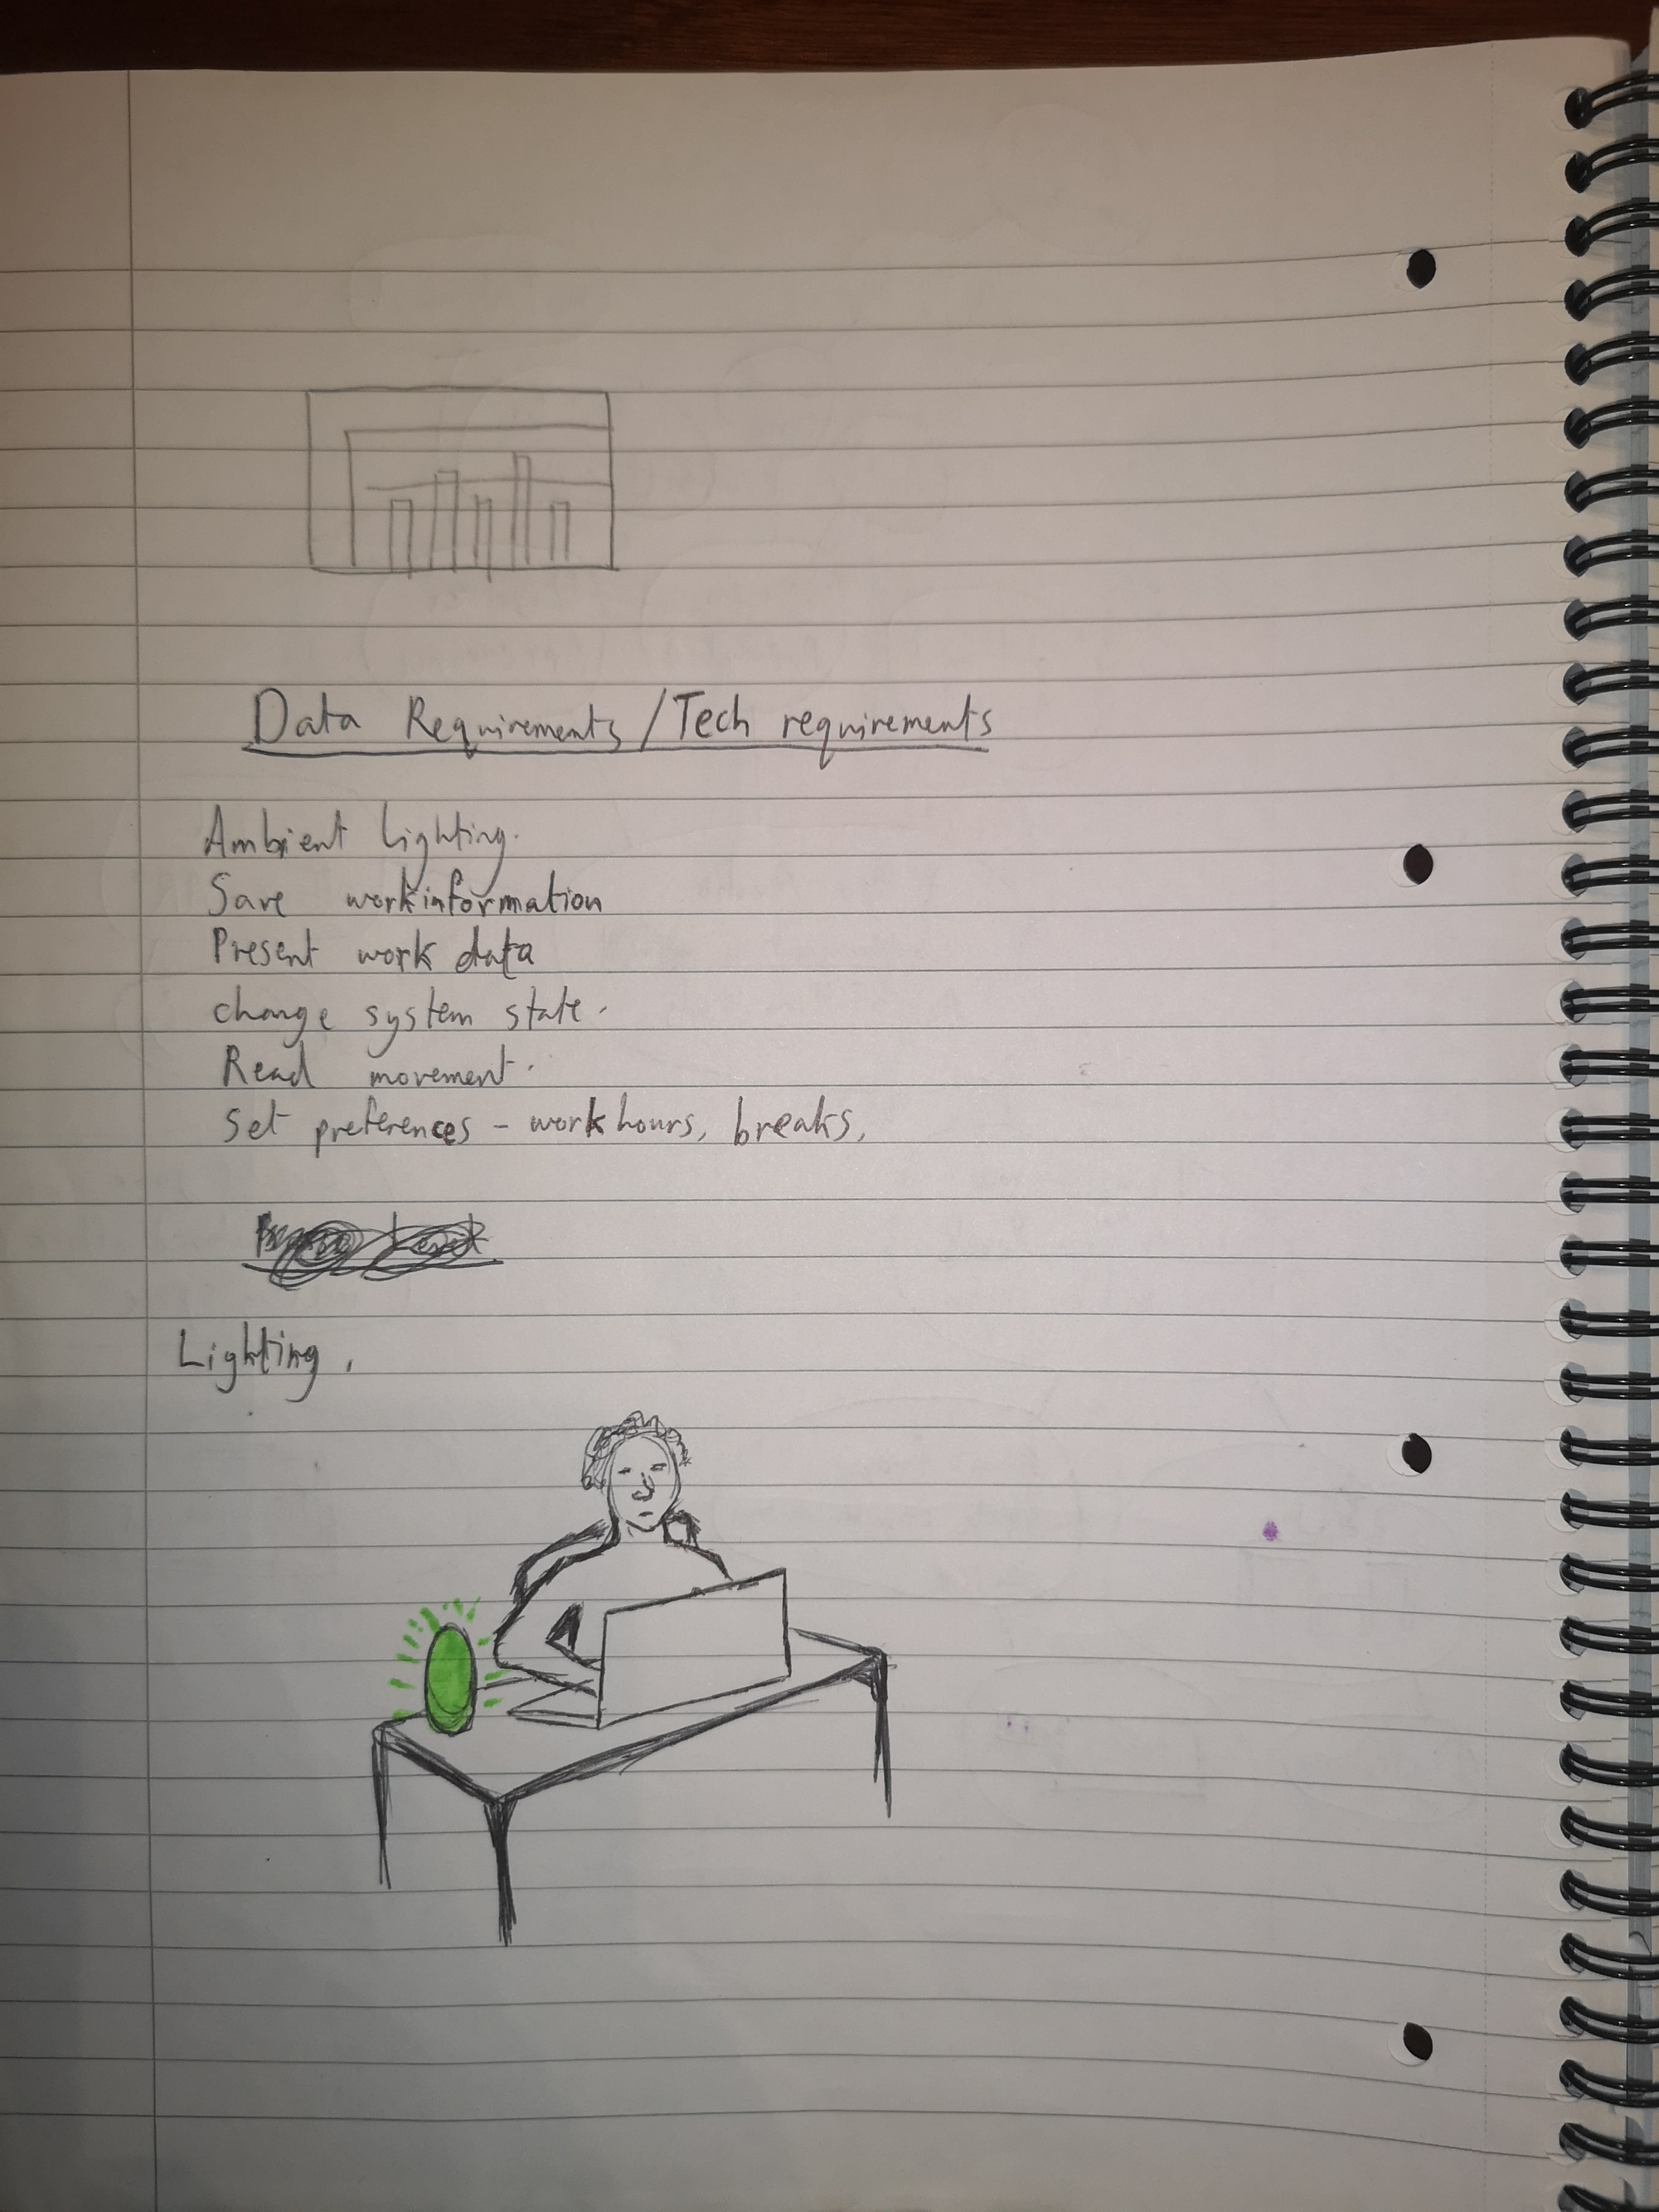 Data Requirements/Tech requirements
Ambient Lighting.
Save workinformation
Present work data
change system state.
Read movement.
Set preferences - workhours, breaks,
Lighting.